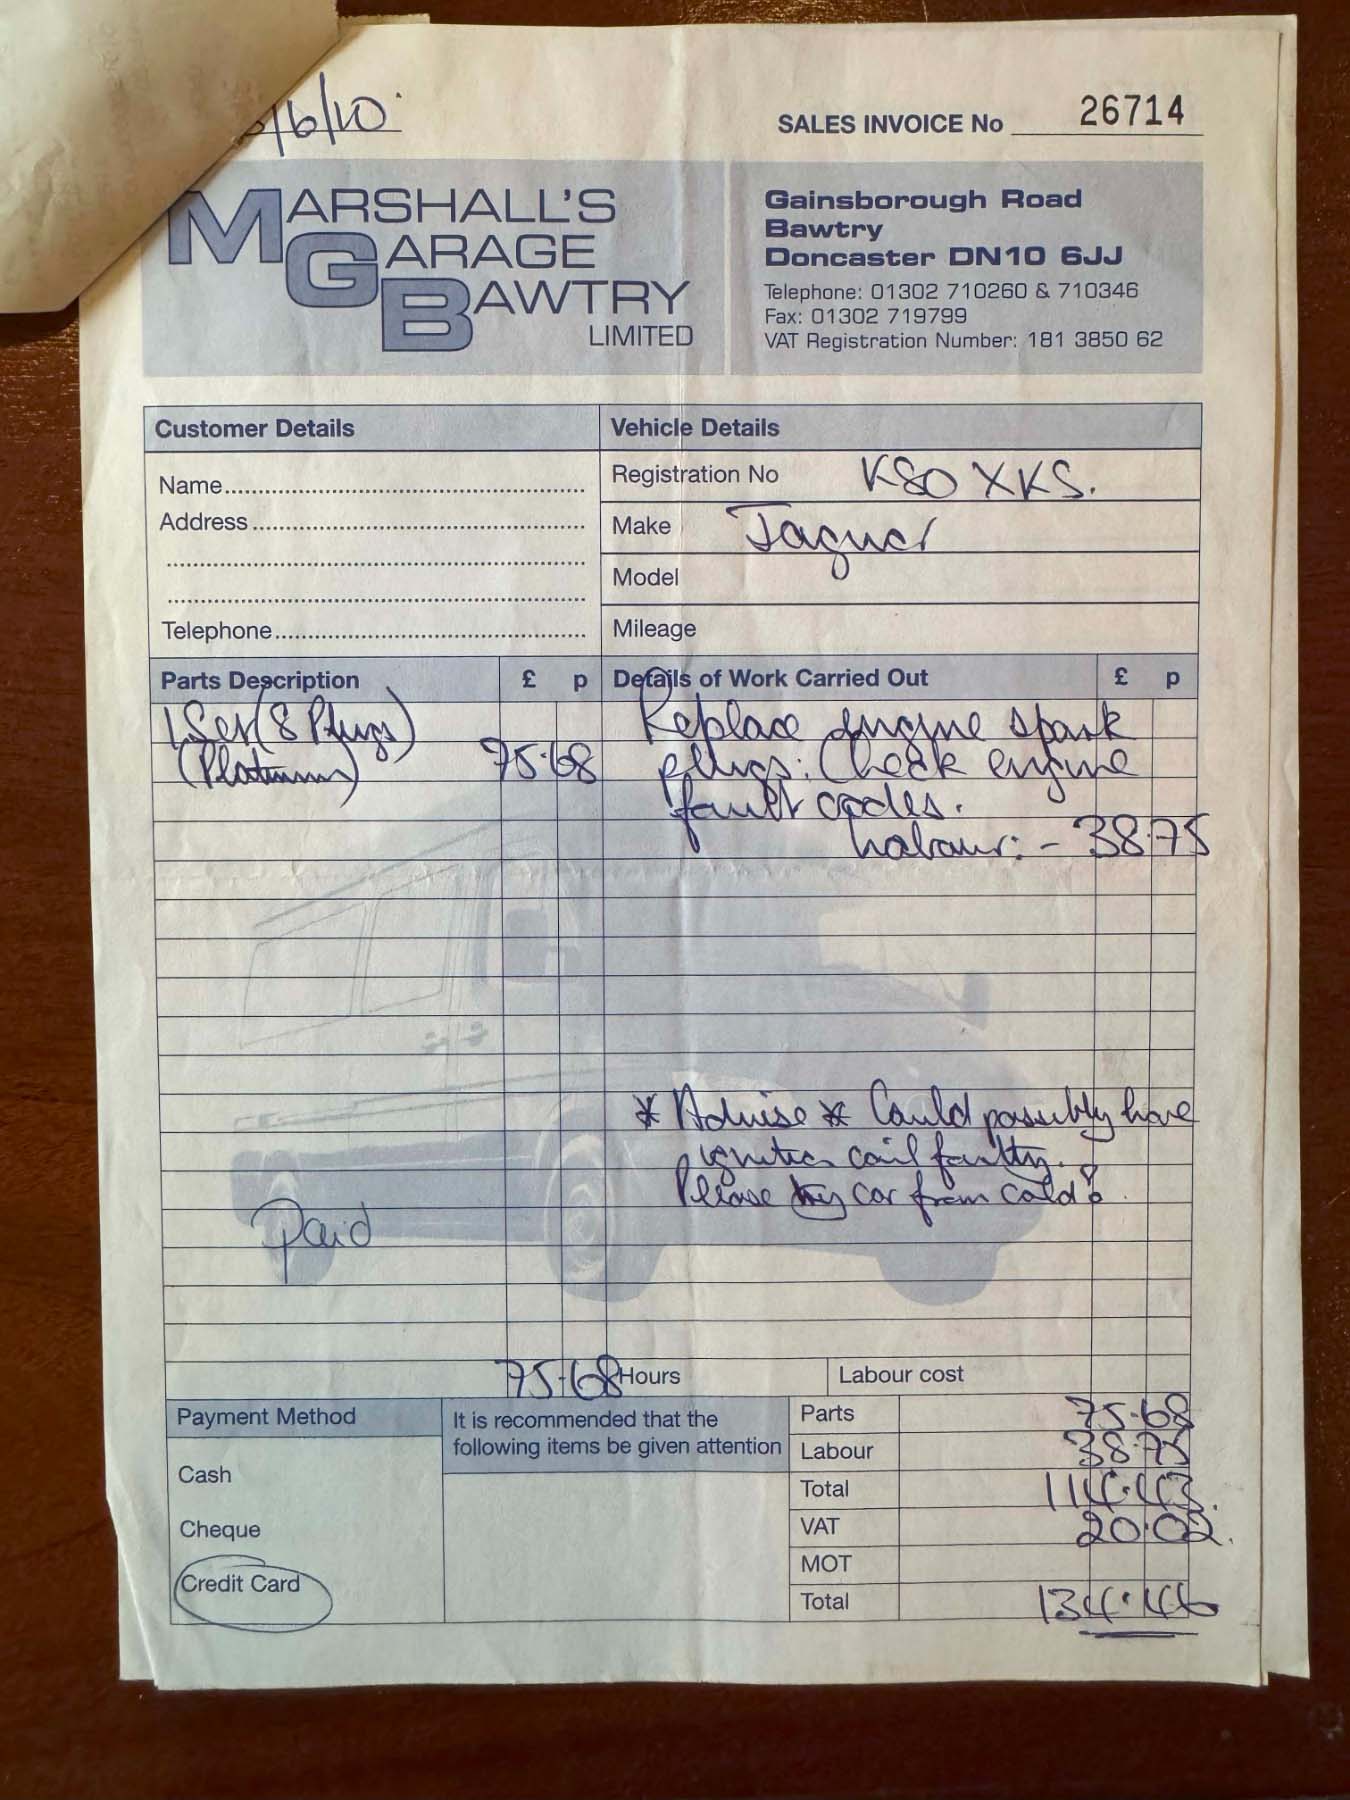 /6/10
SALES INVOICE No 26714
MARSHALL'S
GARAGE
BAWTRY
LIMITED
Gainsborough Road
Bawtry
Doncaster DN10 6JJ
Telephone: 01302 710260 & 710346
Fax: 01302 719799
VAT Registration Number: 181 3850 62
Customer Details
Vehicle Details
Name
Registration No K80 XKS.
Address
Make Jaguar
Model
Telephone
Mileage
Parts Description £ p
Details of Work Carried Out £ p
1 Set (8 Plugs)
(Platinum) 75.68
Replace engine spark
plugs: Check engine
fault codes.
Labour: - 38.75
* Advise * Could possibly have
ignition coil faulty.
Please try car from cold!
Paid
75.68
Hours
Labour cost
Payment Method
Cash
Cheque
Credit Card
It is recommended that the
following items be given attention
Parts 75.68
Labour 38.75
Total 114.43.
VAT 20.02.
MOT
Total 134.46